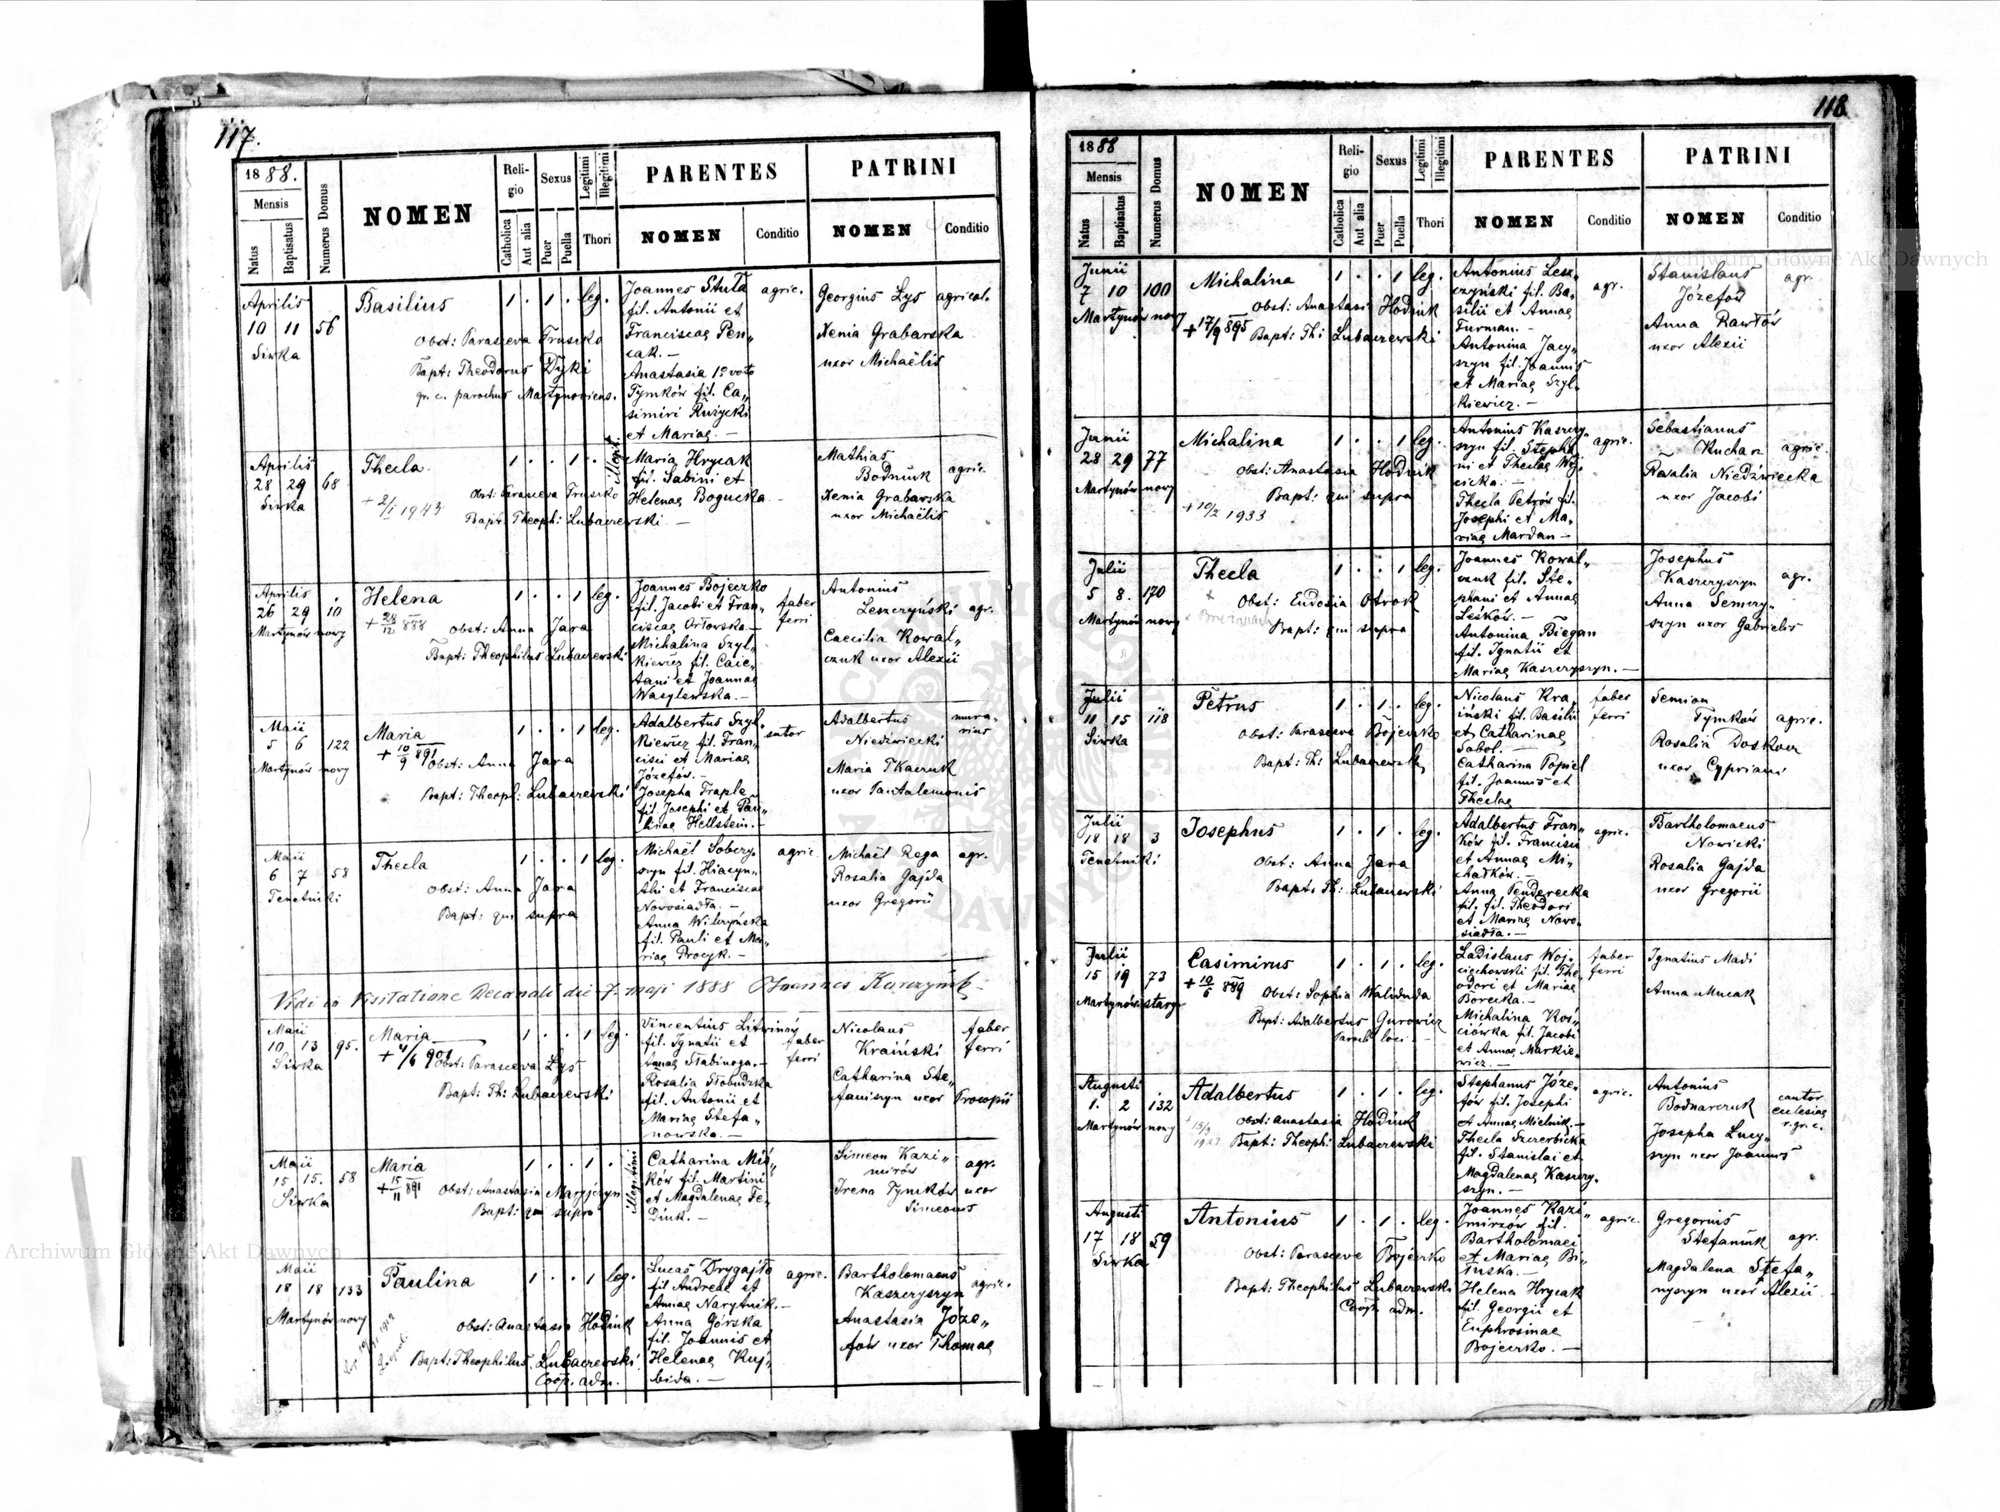 117.
1888.
Mensis
Natus
Baptisatus
Numerus Domus
NOMEN
Religio
Catholica
Aut alia
Sexus
Puer
Puella
Legitimi
Illegitimi
Thori
PARENTES
NOMEN
Conditio
PATRINI
NOMEN
Conditio
Aprilis
10 11 56
Sirka
Basilius
Obst: Parasceva Truszko
Bapt: Theodorus Dyki
gr. c. parochus Martynoviens.
1 . 1 . leg.
Joannes Stula
fil. Antonii et
Franciscae Pen„
cak. —
Anastasia 1o voto
Tymków fil. Ca„
simiri Rużycki
et Mariae. —
agric.
Georgius Lys agricol.
Xenia Grabarska
uxor Michaëlis
Aprilis
28 29 68
Sirka
Thecla.
+ 2/I 1943
Obst: Parasceva Truszko
Bapt: Theoph: Lubaczewski —
1 . . 1 . Illegit.
Maria Hrycak
fil. Sabini et
Helenae Bogucka —
Mathias
Bodnuk agric.
Xenia Grabarska
uxor Michaëlis
Aprilis
26 29 10
Martynów nowy
Helena
+ 28/12 888
Obst: Anna Jara
Bapt: Theophilus Lubaczewski
1 . . 1 leg.
Joannes Bojeczko
fil. Jacobi et Fran„
ciscae Orłowska. —
Michalina Szyl„
kiewicz fil. Caie„
tani et Joannae
Wasylewska. —
faber
ferri
Antonius
Leszczyński agr.
Caecilia Kowal„
czuk uxor Alexii
Maii
5 6 122
Martynów nowy
Maria
+ 10/9 891
Obst: Anna Jara
Bapt: Theoph: Lubaczewski
1 . . 1 leg.
Adalbertus Szyl„
kiewicz fil. Fran„
cisci et Mariae
Józefów. —
Josepha Traple„
fil. Josephi et Pau„
linae Hellstein. —
sutor
Adalbertus
Niedzwiecki
mura„
rius
Maria Tkaczuk
uxor Pantalemonis
Maii
6 7 58
Tenetniki
Thecla
Obst: Anna Jara
Bapt: qui supra
1 . . 1 leg.
Michaël Sobczy„
szyn fil. Hiacyn„
thi et Franciscae
Novosiadła. —
Anna Wilczyńska
fil. Pauli et Ma„
riae Procyk. —
agric.
Michaël Rega agr.
Rosalia Gajda
uxor Gregorii
Vidi in Visitatione Decanali die 7. maji 1888 Joannes
Maii
10 13 95.
Sirka
Maria
+ 4/6 901
Obst: Parasceva Lys
Bapt: Th: Lubaczewski
1 . . 1 leg.
Vincentius Litwinów
fil. Ignatii et
Annae Stabinoga. —
Rosalia Słobudzka
fil. Antonii et
Mariae Stefa„
nowska. —
faber
ferri
Nicolaus
Kraiński
faber
ferri
Catharina Ste„
faniszyn uxor Procopii
Maii
15 15. 58
Sirka
Maria
+ 15/11 891
Obst: Anastasia
Bapt: qui supra
1 . . 1 . illegitimi
Catharina Miś„
ków fil. Martini
et Magdalenae Fe„
dink. —
Simeon Kazi„
mirów agr.
Irena Tymków uxor
Simeonis
Maii
18 18 133
Martynów nowy
Paulina
Obst: Anastasia Hodink
Bapt: Theophilus Lubaczewski
Coop. adm.
1 . . 1 leg.
Lucas Drygajło
fil. Andreae et
Annae Narytnik. —
Anna Górska
fil. Joannis et
Helenae Kuj„
bida. —
agric.
Bartholomaeus
Kaszczyszyn agric.
Anastasia Józe„
fów uxor Thomae
118
1888
Mensis
Natus
Baptisatus
Numerus Domus
NOMEN
Religio
Catholica
Aut alia
Sexus
Puer
Puella
Legitimi
Illegitimi
Thori
PARENTES
NOMEN
Conditio
PATRINI
NOMEN
Conditio
Junii
7 10 100
Martynów nowy
Michalina
Obst: Anastasi Hodink
+ 17/9 895 Bapt: Th: Lubaczewski
1 . . 1 leg.
Antonius Lesz„
czyński fil. Ba„
silii et Annae
Furman. —
Antonina Jacy„
szyn fil. Joannis
et Mariae Szyl„
kiewicz. —
agr.
Stanislaus
Józefów
agr.
Anna Rawłów
uxor Alexii
Junii
28 29 77
Martynów nowy
Michalina
Obst: Anastasia Hodink
Bapt: qui supra
+ 10/X 1933
1 . . 1 leg.
Antonius Kaszczy„
szyn fil. Stepha„
ni et Theclae Woj„
cicka. —
Thecla Petrów fil.
Josephi et Ma„
riae Mardan —
agric.
Sebastianus
Kuchar agric.
Rosalia Niedźwiecka
uxor Jacobi
Julii
5 8. 170
Martynów nowy
Thecla
Obst: Eudosia Otrok
Bapt: qui supra
1 . . 1 leg.
Joannes Kowal„
czuk fil. Ste„
phani et Annae
Leśków. —
Antonina Biegan
fil. Ignatii et
Mariae Kaszczyszyn. —
Josephus
Kaszczyszyn agr.
Anna Semczy„
szyn uxor Gabrielis
Julii
11 15 118
Sirka
Petrus
Obst: Parasceve Bojeczko
Bapt: Th: Lubaczewski
1 . 1 . leg.
Nicolaus Kra„
iński fil. Basilii
et Catharinae
Sobol. —
Catharina Popiel
fil. Joannis et
Theclae
faber
ferri
Semion
Tymków agric.
Rosalia
uxor Cypriani
Julii
18 18 3
Tenetniki
Josephus
Obst: Anna Jara
Bapt: Th: Lubaczewski
1 . 1 . leg.
Adalbertus Fran„
ków fil. Francisci
et Annae Mi„
chałków. —
Anna Penderecka
fil. fil. Theodori
et Mariae Nowo„
siadła. —
agric.
Bartholomaeus
Nowicki
Rosalia Gajda
uxor Gregorii
Julii
15 19 73
Martynów stary
Casimirus
+ 10/6 889
Obst: Sophia Walunda
Bapt: Adalbertus Gurowicz
Paroch loci. —
1 . 1 . leg.
Ladislaus Woj„
ciechowski fil. The„
odori et Mariae
Borecka. —
Michalina Koś„
ciówka fil. Jacobi
et Annae Markie„
wicz. —
faber
ferri
Ignatius Madi
Anna Mucak
Augusti
1. 2 132
Martynów nowy
Adalbertus
Obst: Anastasia Hodink
Bapt: Theoph: Lubaczewski
1 . 1 . leg.
Stephanus Józe„
fów fil. Josephi
et Annae Mielnik. —
Thecla Szczerbicka
fil. Stanislai et
Magdalenae Kaszczy„
szyn. —
agric.
Antonius
Bodnarczuk
cantor
eclesiae
r. gr. c.
Josepha Lucy„
szyn uxor Joannis
Augusti
17 18 59
Sirka
Antonius
Obst: Parasceve Bojeczko
Bapt: Theophilus Lubaczewski
Coop. adm.
1 . 1 . leg.
Joannes Kazi„
mirzów fil.
Bartholomaei
et Mariae Bi„
łuska. —
Helena Hrycak
fil. Georgii et
Euphrosinae
Bojeczko. —
agric.
Gregorius
Stefaniuk agr.
Magdalena Stefa„
nyszyn uxor Alexii
Archiwum Główne Akt Dawnych
Archiwum Główne Akt Dawnych